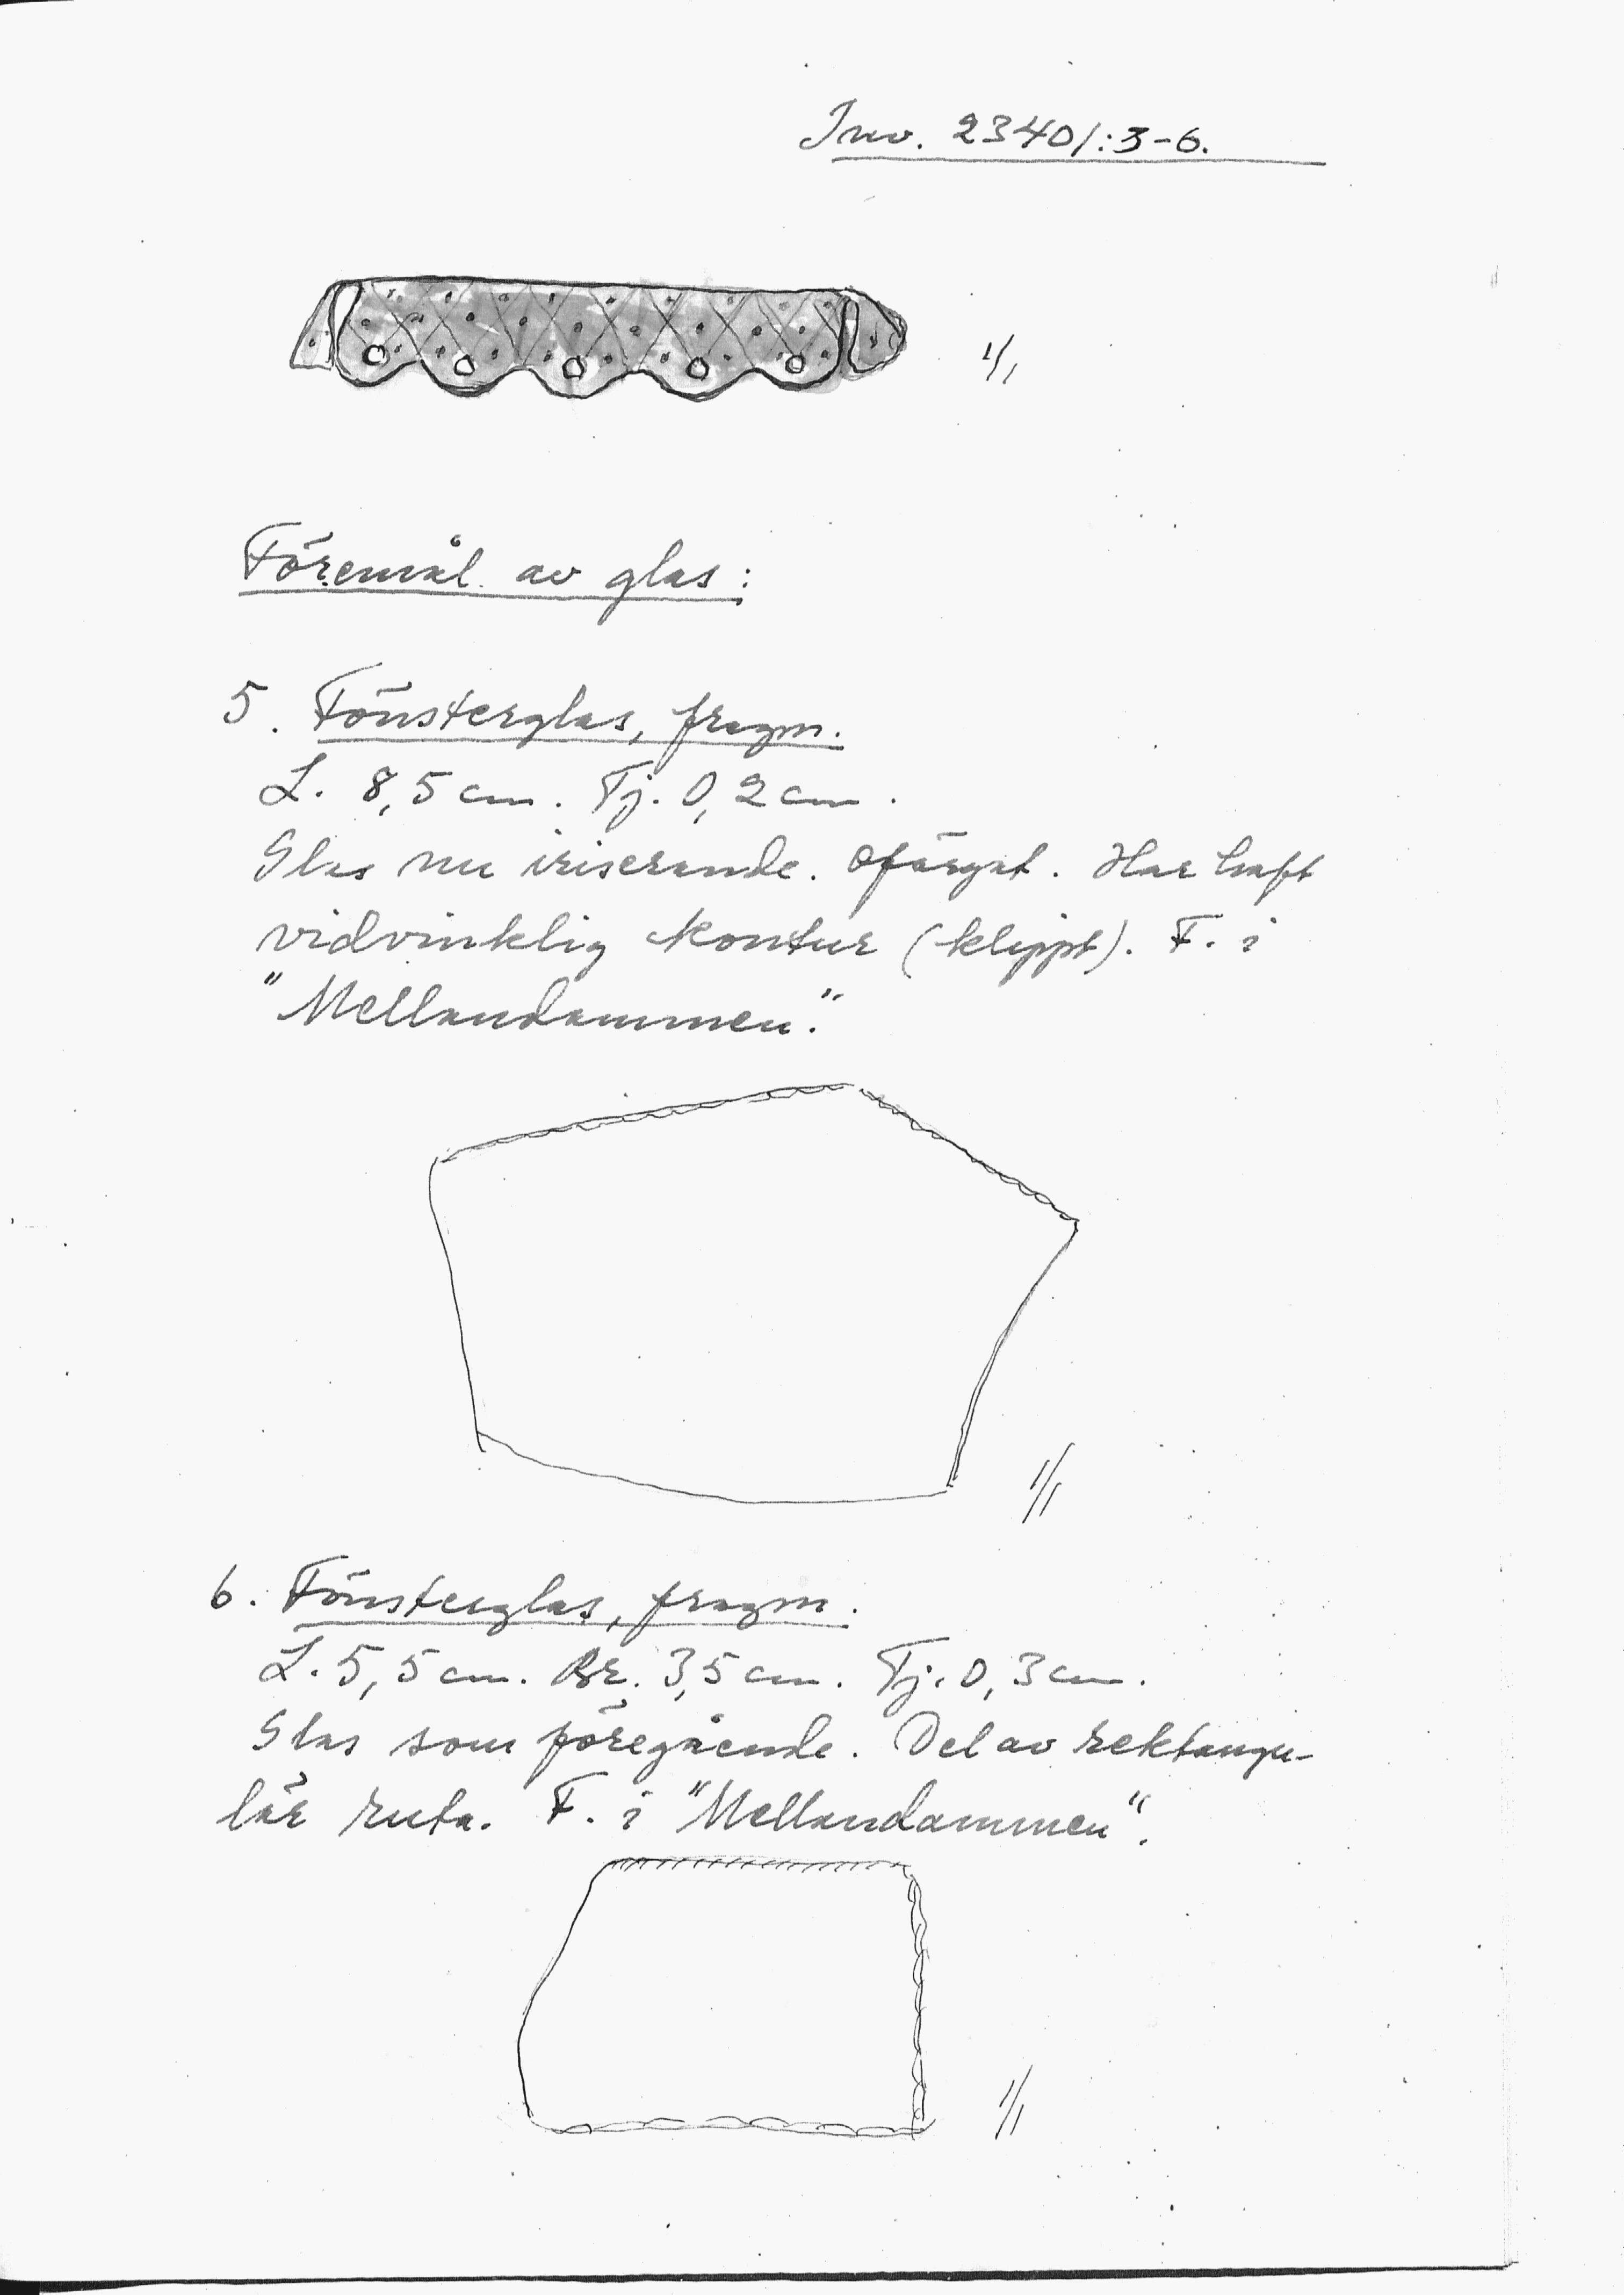 Inv. 23401:3-6.
1/1
Föremål av glas:
5. Fönsterglas, fragm.
L. 8,5 cm. Tj. 0,2 cm.
Glas nu iriserande. Ofärgat. Har haft
vidvinklig kontur (klippt). F. i
"Mellandammen".
1/1
6. Fönsterglas, fragm.
L. 5,5 cm. Br. 3,5 cm. Tj. 0,3 cm.
Glas som föregående. Del av rektangu-
lär ruta. F. i "Mellandammen".
1/1